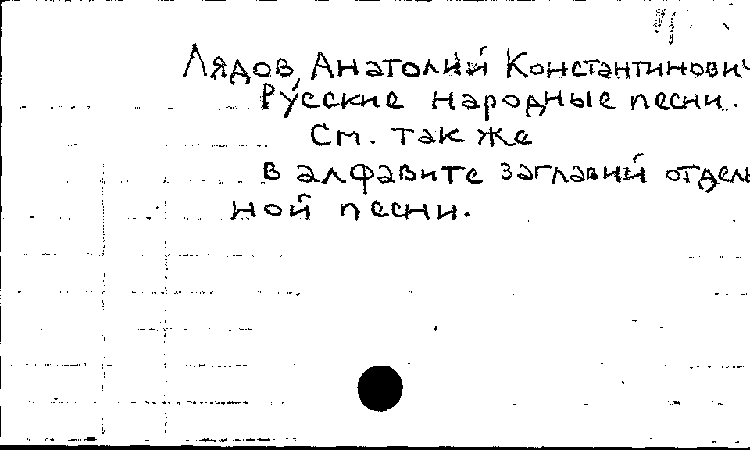 Лядов, Анатолий Константинович
Русские народные песни.
См. также
в алфавите заглавий отдель
ной песни.